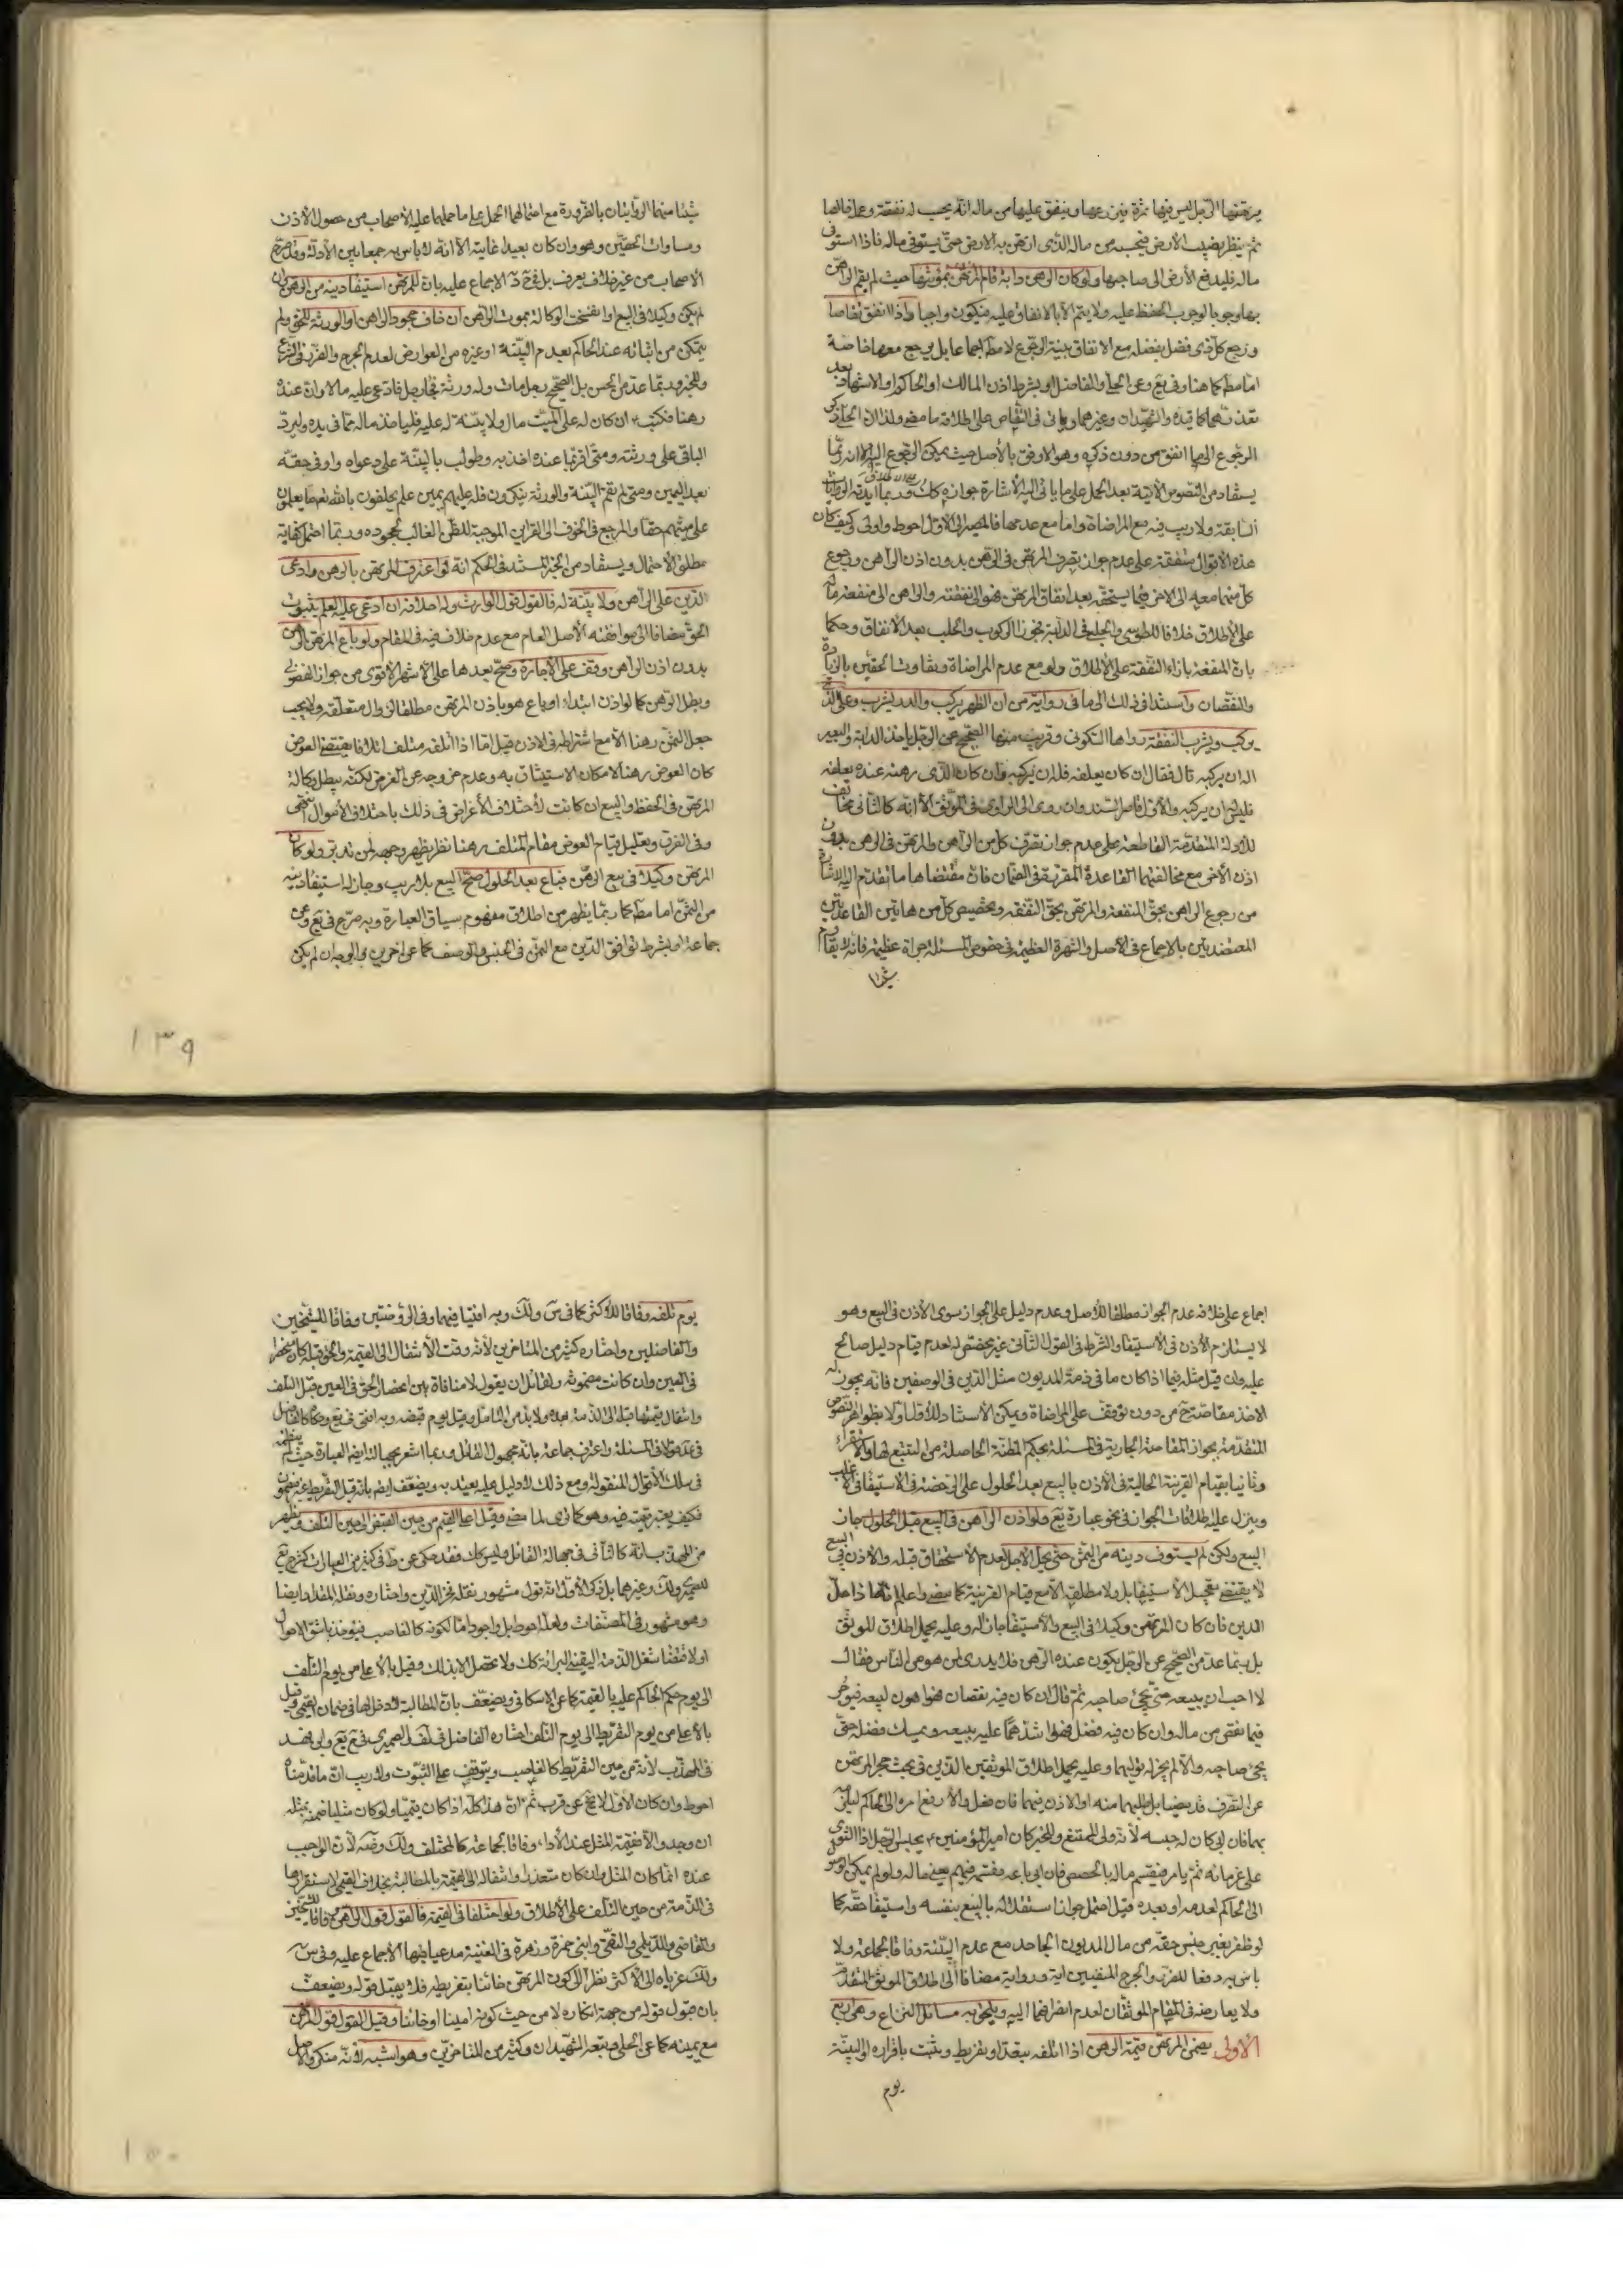 يرتهنها الرجل ليس فيها ثمرة فيزرعها وينفق عليها من ماله انه يحسب له نفقته وعمله خالصا
ثم ينظر نصيب الأرض فيحسبه من ماله الذي ارتهن به الارض حتى يستوفي ماله فاذا استوفى
ماله فليدفع الأرض الى صاحبها ولو كان الرهن دابة قام المرتهن بمؤونتها حيث لم يقم الراهن
بها وجوبا لوجوب الحفظ عليه ولا يتم الا بالانفاق عليه فيكون واجبا واذا انفق تقاصا
ورجع كل ذي فضل بفضله مع الانفاق بنية الرجوع لا مطلقا اجماعا بل يرجع معها خاصة
اما مطلقا كما هنا وفي يع وعن الحلي والفاضل او بشرط اذن المالك او الحاكم او الاشهاد بعد
تعذرهما كما قيده الشهيدان وغيرهما ويأتي في التقاص على اطلاقه ما مضى ولذا ان
الرجوع الى ما انفق من دون ذكره وهو الاوفق بالأصل حيث يمكن الرجوع اليه الا انه ربما
يستفاد من النصوص الآتية بعد الحمل على ما يأتي اليه الاشارة جوازه كك وربما ايدته الروايات
السابقة ولا ريب فيه مع المراضاة واما مع عدمها فالمصير الى الاول احوط واولى وكيف كان
هذه الاقوال متفقة على عدم جواز تصرف المرتهن في الرهن بدون اذن الراهن ورجوع
كل منهما معه الى الاخر فيما يستحقه بعد انفاق المرتهن فهو الى نفقته والراهن الى منفعة ماله
على الاطلاق خلافا للطوسي والحلبي في الدابة فجوزا الركوب والحلب بعد الانفاق وحكما
بان المنفعة بازاء النفقة على الاطلاق ولو مع عدم المراضاة وتفاوت الحقين بالزيادة
والنقصان واستندا في ذلك الى ما في رواية من ان الظهر يركب والدر يشرب وعلى الذي
يركب ويشرب النفقة رواها السكوني وقريب منها الصحيح عن الرجل ياخذ الدابة والبعير
اله ان يركبه قال فقال ان كان يعلفه فله ان يركبه وان كان الذي رهنه عنده يعلفه
فليس ان يركبه والأول قاصر السند وان روى الى الراوي في الموثق الا انه كالثاني مخالف
للادلة المتقدمة القاطعة على عدم جواز تصرف كل من الراهن والمرتهن في الرهن بدون
اذن الأخر مع مخالفتهما القاعدة المقررة في الضمان فان مقتضاها ما تقدم اليه الاشارة
من رجوع الراهن بحق المنفعة والمرتهن بحق النفقة وتخصيص كل من هاتين القاعدتين
المعتضدتين بالاجماع في الأصل والشهرة العظيمة في خصوص المسئلة جراة عظيمة فانه لا يقاوم
شيئا
شيئا منهما الروايتان بالضرورة مع احتمالهما الحمل على ما حملهما عليه الأصحاب من حصول الاذن
ومساوات الحقين وهو وان كان بعيدا غايته الا انه لا باس به جمعا بين الأدلة وقد صرح
الاصحاب من غير خلاف يعرف بل في الاجماع عليه بان للمرتهن استيفاء دينه من الرهن وان
لم يكن وكيلا في البيع او انفسخت الوكالة بموت الراهن ان خاف جحود الراهن او الورثة للحق ولم
يتمكن من اثباته عند الحاكم بعدم البينة او غيره من العوارض لعدم الحرج والضرر في الشرع
وللخبر وربما عد من الحسن بل الصحيح رجل مات وله ورثة فجاء رجل فادعى عليه مالا وان عنده
رهنا فكتب ان كان له على الميت مال ولا بينة له عليه فليأخذ ماله مما في يده وليرد
الباقي على ورثته ومتى اقر بما عنده اخذ به وطولب بالبينة على دعواه واوفى حقه
بعد اليمين ومتى لم تقم البينة والورثة ينكرون فله عليهم يمين علم يحلفون بالله تعالى ما يعلمون
على ميتهم حقا والمرجع في الخوف الى القراين الموجبة للظن الغالب بجحوده وربما احتمل كفاية
مطلق الاحتمال ويستفاد من الخبر المستند في الحكم انه لو اعترف المرتهن بالرهن وادعى
الدين على الراهن ولا بينة له فالقول قول الوارث وله احلافه ان ادعى عليه العلم بثبوت
الحق مضافا الى موافقته الأصل العام مع عدم خلاف فيه في المقام ولو باع المرتهن الرهن
بدون اذن الراهن وقف على الاجازة وصح بعدها على الاشهر الاقوى من جواز الفضولي
وبطل الرهن كما لو اذن ابتداء او باع هو باذن المرتهن مطلقا لزوال متعلقه ولا يجب
جعل الثمن رهنا الا مع اشتراطه في الاذن قيل اما اذا اتلفه متلف اتلافا يقتضي العوض
كان العوض رهنا لامكان الاستيثاق به وعدم خروجه عن الغرض لكنه يبطل وكالة
المرتهن في الحفظ والبيع ان كانت لاختلاف الأغراض في ذلك باختلاف الأموال انتهى
وفي الفرق وتعليل قيام العوض مقام المتلف رهنا نظر يظهر وجهه لمن تدبر ولو كان
المرتهن وكيلا في بيع الرهن فباع بعد الحلول صح البيع بلا ريب وجاز له استيفاء دينه
من الثمن اما مطلقا كما ربما يظهر من اطلاق مفهوم سياق العبارة وبه صرح في يع وعن
جماعة او بشرط توافق الدين مع الثمن في الجنس والوصف كما عن اخرين والوجه ان لم يكن
١٣٩
اجماع على خلافه عدم الجواز مطلقا للأصل وعدم دليل على الجواز سوى الاذن في البيع وهو
لا يستلزم الأذن في الاستيفاء والشرط في القول الثاني غير مخصص له لعدم قيام دليل صالح
عليه وان قيل مثله فيما اذا كان ما في ذمة المديون مثل الدين في الوصفين فانه يجوز له
الاخذ مقاصة ح من دون توقف على المراضاة ويمكن الاستناد للاقوال اولا بظواهر النصوص
المتقدمة بجواز المقاصة الجارية في المسئلة بحكم المظنة الحاصلة من التتبع لها والاستقراء
وثانيا بقيام القرينة الحالية في الأذن بالبيع بعد الحلول على الرخصة في الاستيفاء في الأغلب
وينزل عليه اطلاقات الجواز في نحو عبارة يع ولو اذن الراهن في البيع قبل الحلول جاز
البيع ولكن لم يستوف دينه من الثمن حتى يحل الاجل لعدم الاستحقاق قبله والاذن في البيع
لا يقتضي تعجيل الاستيفاء بل ولا مطلقه الا مع قيام القرينة كما مضى واعلم انه اذا حل
الدين فان كان المرتهن وكيلا في البيع والاستيفاء جاز له وعليه يحمل اطلاق الموثق
بل ربما عد من الصحيح عن الرجل يكون عنده الرهن فلا يدري لمن هو من الناس فقال
لا احب ان يبيعه حتى يجئ صاحبه ثم قال ان كان فيه نقصان فهو اهون لبيعه فيوجر
فيما نقص من ماله وان كان فيه فضل فهو اشدهما عليه يبيعه ويمسك فضله حتى
يجئ صاحبه والا لم يجز له توليهما وعليه يحمل اطلاق الموثقين بالدين في بحث حجر المرتهن
عن التصرف قد مضيا بل طلبهما منه او الاذن فيهما فان فعل والا رفع امره الى الحاكم ليلزمه
بهما فان ابى كان له حبسه لأنه ولي الممتنع وللخبر كان امير المؤمنين ع يحبس الرجل اذا التوى
على غرمائه ثم يأمر فيقسم ماله بالحصص فان ابى باعه فقسمه فيهم يعني ماله ولو لم يمكن الوصول
الى الحاكم لعدمه او بعده قيل احتمل جواز استقلاله بالبيع بنفسه واستيفاء حقه كما
لو ظفر بغير جنس حقه من مال المديون الجاحد مع عدم البينة وفاقا لجماعة ولا
باس به دفعا للضرر والحرج المنفيين اية ورواية مضافا الى اطلاق الموثق المتقدم
ولا يعارضه في المقام الموثقان لعدم انصرافهما اليه ويلحق به مسائل النزاع وهي اربع
الأولى يضمن المرتهن قيمة الرهن اذا اتلفه بتعد او تفريط ويثبت باقراره او البينة
يوم
يوم تلفه وفاقا للأكثر كما في س ولك وبه افتيا فيهما وفي الروضتين وفاقا للشيخين
والفاضلين واختاره كثير من المتاخرين لأنه وقت الانتقال الى القيمة والحق قبله كان منحصرا
في العين وان كانت مضمونة ولقائل ان يقول لا منافاة بين انحصار الحق في العين قبل التلف
وانتقال قيمتها قبله الى الذمة بعده ولا بد من التامل وقيل يوم قبضه وبه افتى في يع وحكاه كالفاضل
في عد قولا في المسئلة واعترف جماعة بانه مجهول القائل وربما اشعر بجهالته ايضا العبارة حيث لم ينظمه
في سلك الأقوال المنقولة ومع ذلك لا دليل عليه يعتد به ويضعف ايضا بانه قبل التفريط غير مضمون
فكيف يعتبر قيمته فيه وهو كما ترى لما مضى وقيل اعلى القيم من حين القبض الى حين التلف ويظهر
من المهذب انه كالثاني في جهالة القائل وليس كك فقد حكي عن ط في كثير من العبارات كشرح يع
للصيمري ولك وغيرهما بل ذكر الأول انه قول مشهور نقله فخر الدين واختاره ونقله المقداد ايضا
وهو مشهور في المصنفات ولعله احوط بل واجود اما لكونه كالغاصب فيؤخذ باشق الاحوال
او لاقتضاء شغل الذمة اليقيني البرائة كك ولا تحصل الا بذلك وقيل بالأعلى من يوم التلف
الى يوم حكم الحاكم عليه بالقيمة كما عن الاسكافي ويضعف بان المطالبة لا دخل لها في ضمان القيمي وقيل
بالأعلى من يوم التفريط الى يوم التلف اختاره الفاضل في لف الصيمري في ح يع وابن فهد
في المهذب لأنه من حين التفريط كالغاصب ويتوقف على الثبوت ولا ريب ان ما قدمناه
احوط وان كان الأول لا يخ عن قرب ثم ان هذا كله اذا كان قيميا ولو كان مثليا ضمنه بمثله
ان وجد والا فقيمة المثل عند الأداء وفاقا لجماعة كالمختلف ولك وضه لأن الواجب
عنده انما كان المثل وان كان متعذرا وانتقاله الى القيمة بالمطالبة بخلاف القيمي لاستقرارها
في الذمة من حين التلف على الأطلاق ولو اختلفا في القيمة فالقول قول الراهن وفاقا للشيخين
والقاضي والديلمي والتقي وابني حمزة وزهرة في الغنية مدعيا فيها الأجماع عليه وفي س
ولك عزياه الى الأكثر نظرا الى كون المرتهن خائنا بتفريطه فلا يقبل قوله ويضعف
بان قبول قوله من جهة انكاره لا من حيث كونه امينا او خائنا وقيل القول قول المرتهن
مع يمينه كما عن الحلي وتبعه الشهيدان وكثير من المتاخرين وهو اشبه لأنه منكر والأصل